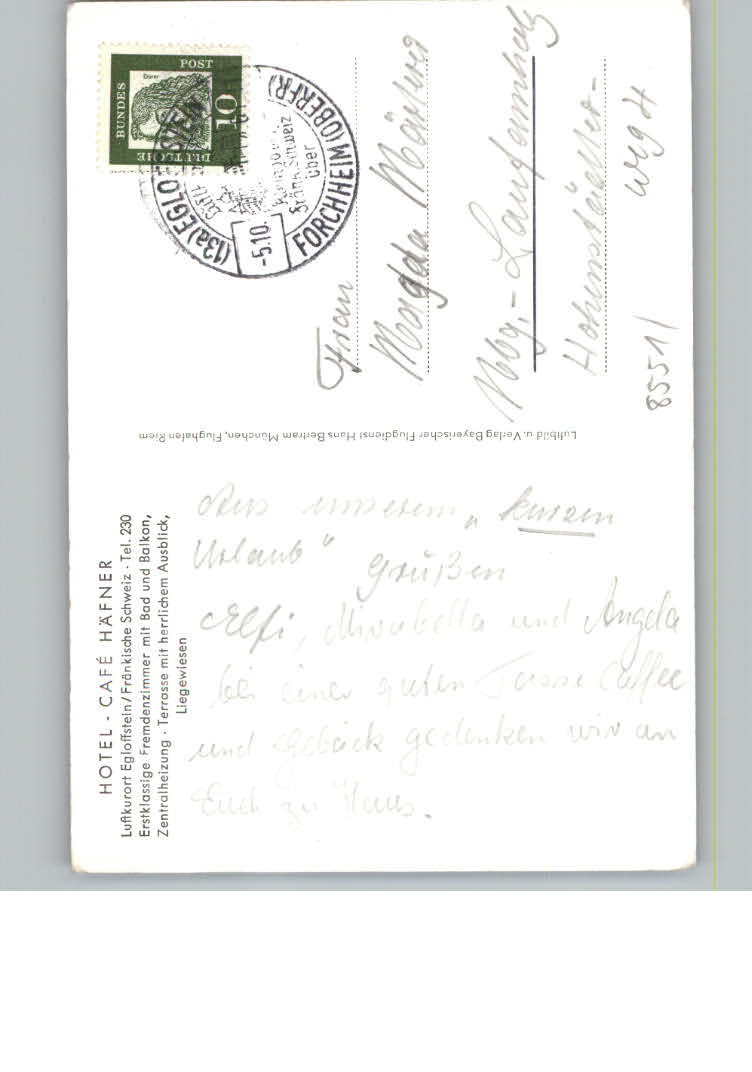 HOTEL - CAFÉ HÄFNER
Luftkurort Egloffstein/Fränkische Schweiz · Tel. 230
Erstklassige Fremdenzimmer mit Bad und Balkon,
Zentralheizung · Terrasse mit herrlichem Ausblick,
Liegewiesen
Aus unserem „kurzen
Urlaub" grüßen
Elfi, Mirabella und Angela
bei einer guten Tasse Caffee
und Gebäck gedenken wir an
Euch zu Haus.
Luftbild u. Verlag Bayerischer Flugdienst Hans Bertram München, Flughafen Riem
DEUTSCHE
BUNDES
POST
Dürer
10
(13a) EGLOFFSTEIN
über
FORCHHEIM (OBERFR)
Fränk. Schweiz
-5.10.
Frau
Magda
Nbg.-Laufamholz
Hohenstädter-
weg 4
8551/